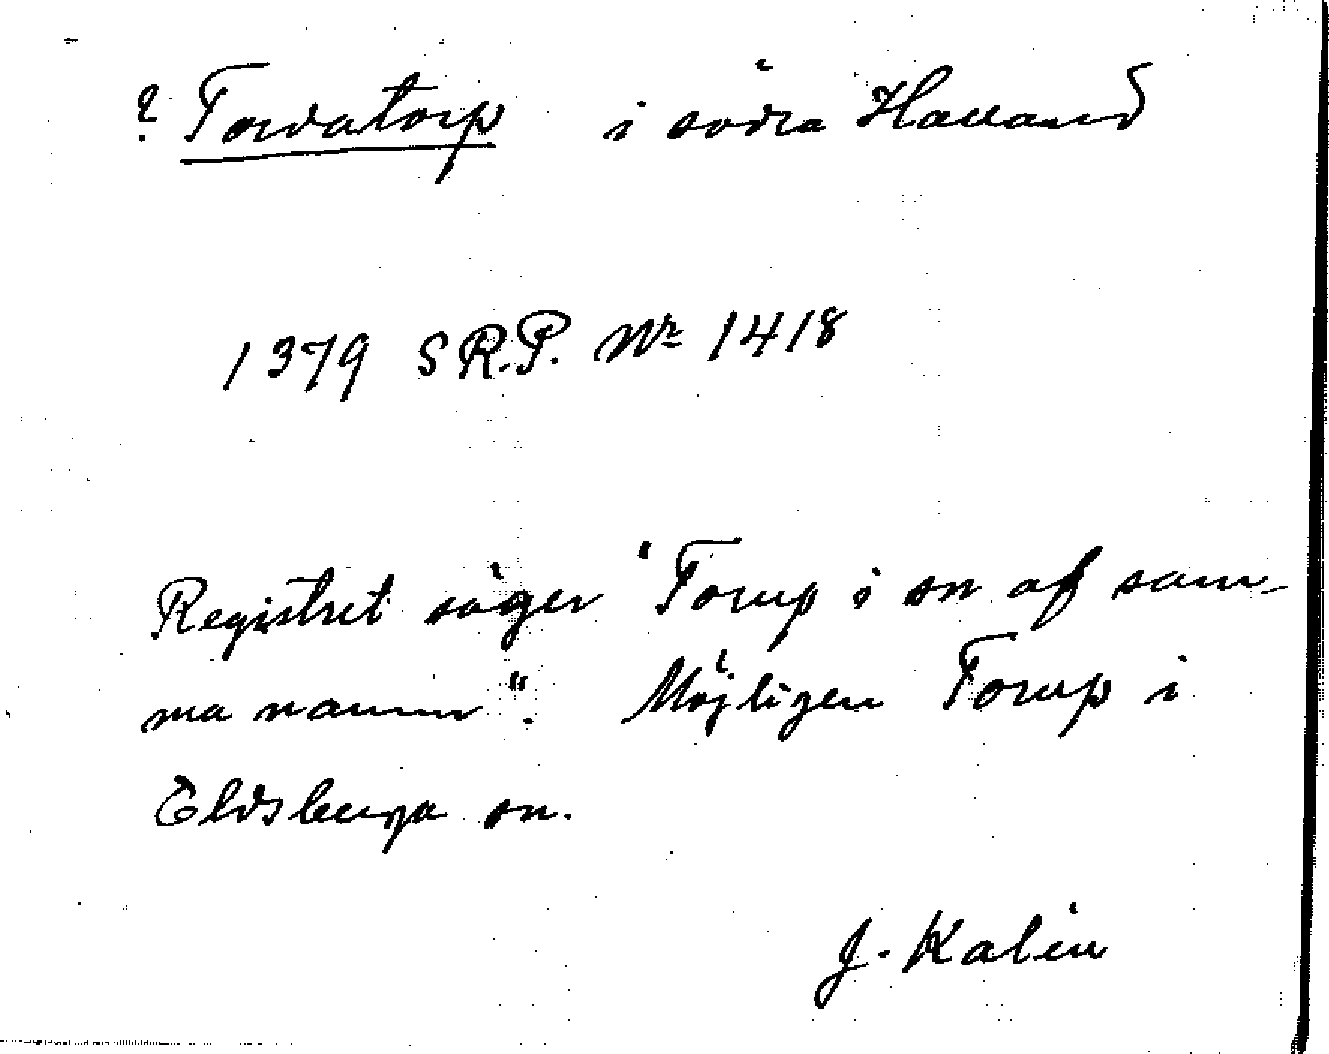 ? Tordatorp i södra Halland
1379 S R.P. Nr 1418
Registret säger "Torup i sn af sam-
ma namn". Möjligen Torup i
Eldsberga sn.
J. Kalén